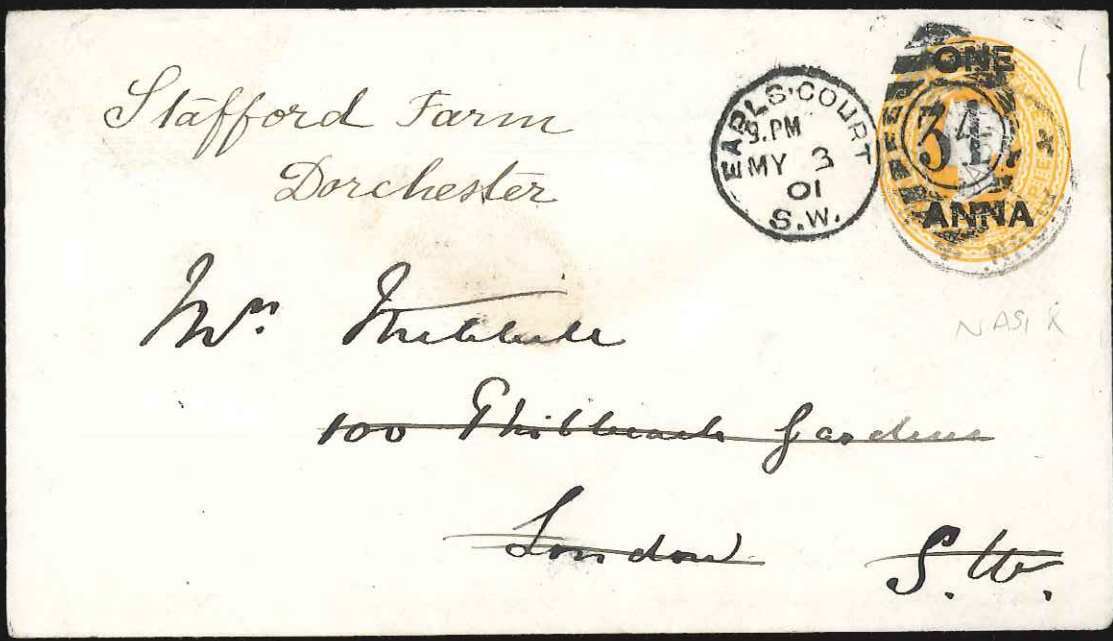 Stafford Farm
Dorchester
EARLS·COURT
9.PM
MY 3
01
S.W.
ONE
34
ANNA
NASIK
Mrs.
100 Philbeach Gardens
London S.W.